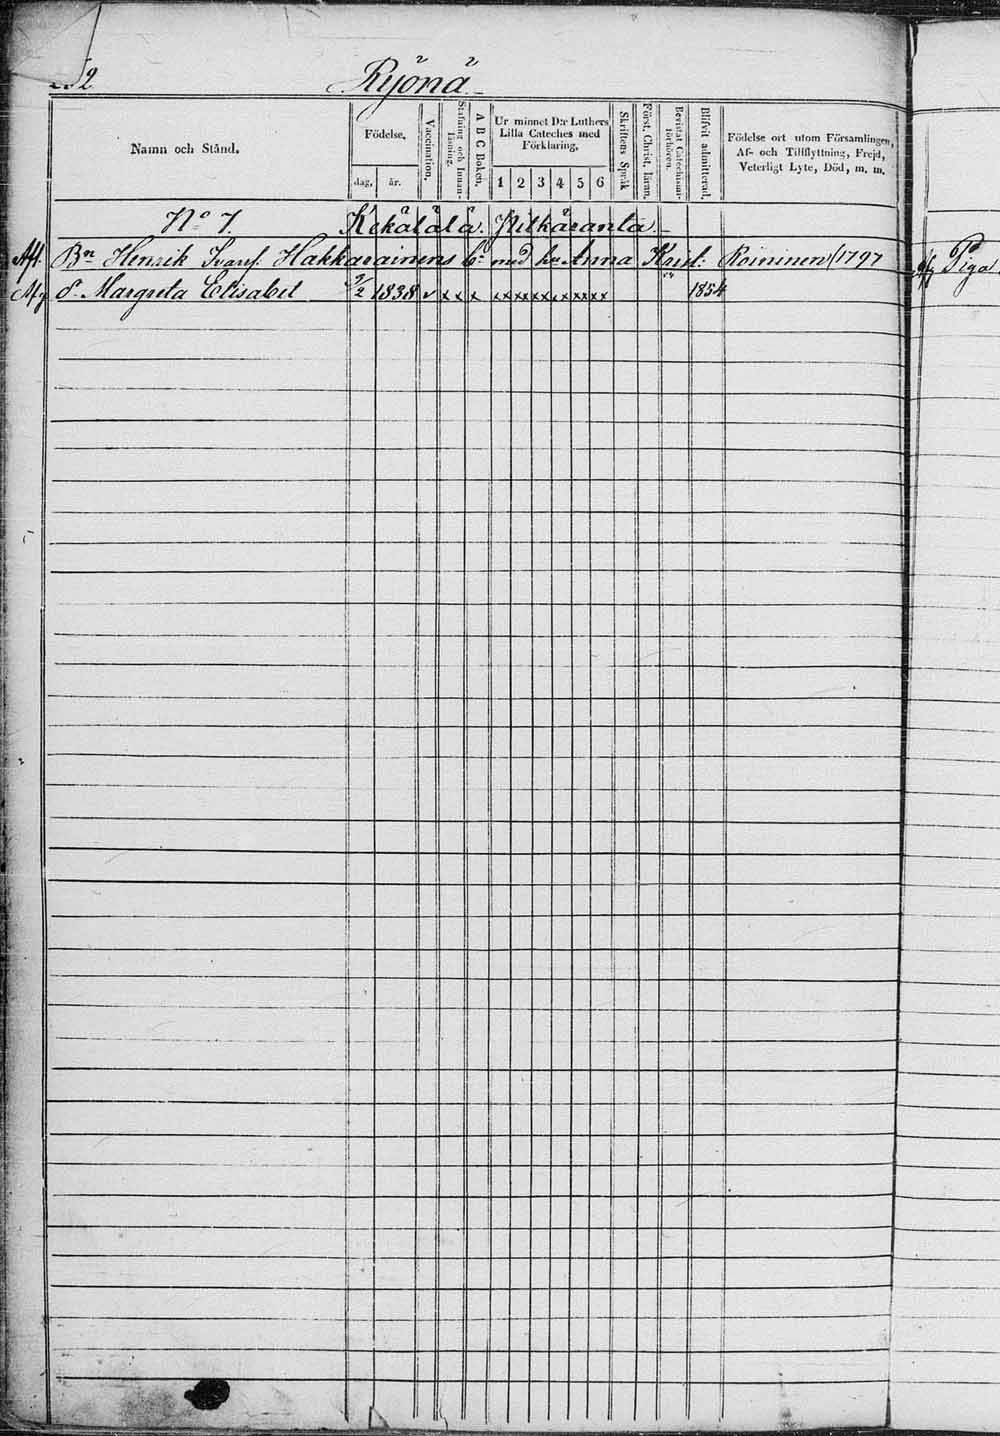 2 Ryönä
Namn och Stånd.
Födelse.
dag.
år.
Vaccination.
Stafning och Innan-läsning.
A B C Boken.
Ur minnet D:r Luthers
Lilla Cateches med
Förklaring,
1 2 3 4 5 6
Skriftens Språk
Först. Christ. läran.
Bevistat Catechismi-förhören.
Blifvit admitterad.
Födelse ort utom Församlingen,
Af- och Tillflyttning, Frejd,
Veterligt Lyte, Död, m. m.
No 7. Kekälälä. Pitkäranta
Bn Henrik Ivarss. Hakkarainens med hu Anna Krist: Roininen (1797
d. Margreta Elisabet 3/2 1838 v x x x x x x x x x x x x x 1854
Piga